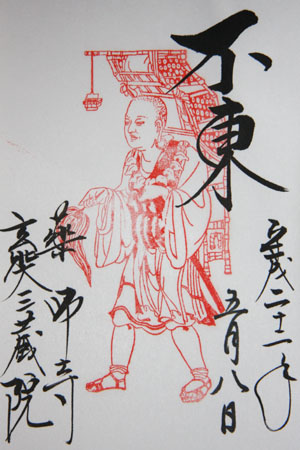 不東
平成二十一年
五月八日
薬師寺
玄奘三蔵院